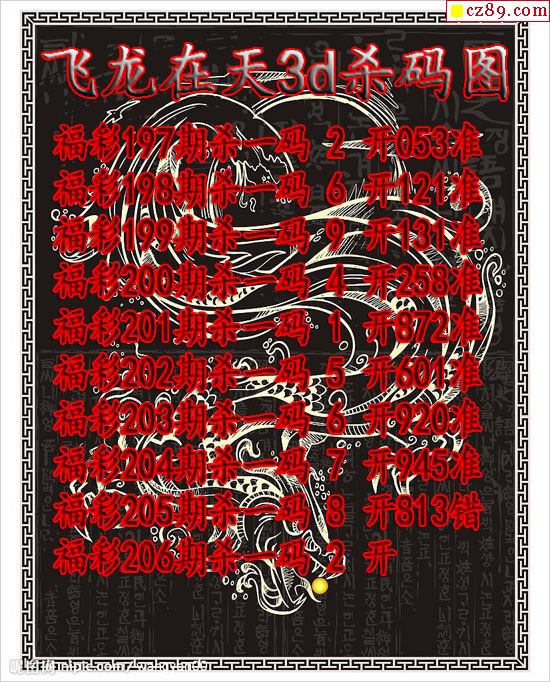 cz89.com
飞龙在天3d杀码图
福彩197期杀一码 2 开053准
福彩198期杀一码 6 开121准
福彩199期杀一码 9 开131准
福彩200期杀一码 4 开258准
福彩201期杀一码 1 开872准
福彩202期杀一码 5 开601准
福彩203期杀一码 6 开920准
福彩204期杀一码 7 开945准
福彩205期杀一码 8 开813错
福彩206期杀一码 2 开